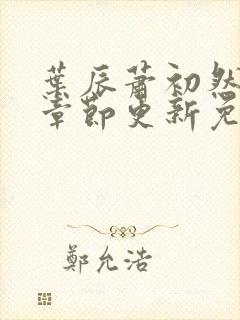 葉辰蕭初然
章節更新免
鄭允浩